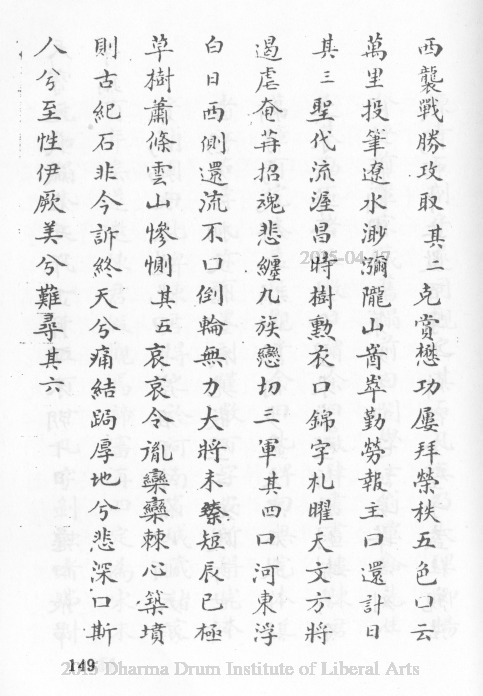 西襲戰勝攻取其二克賞懋功屢拜榮秩五色口云
萬里投筆遼水渺瀰隴山崙崒勤勞報主口還計日
其三聖代流渥昌時樹勳衣口錦字札曜天文方將
遏虐奄苒招魂悲纏九族戀切三軍其四口河東浮
白日西側還流不口倒輪無力大將未瘵短辰已極
草樹蕭條雲山慘惻其五哀哀令胤欒欒棘心築墳
則古紀石非今訴終天兮痛結跼厚地兮悲深口斯
人兮至性伊厥美兮難尋其六
2015-04-17
149
2013 Dharma Drum Institute of Liberal Arts